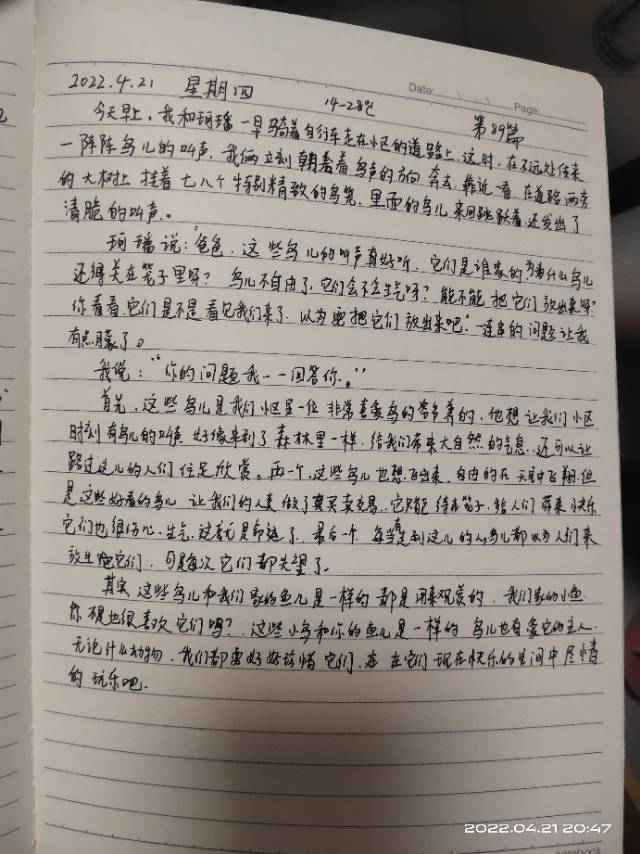 Date:
Page:
2022.4.21 星期四 14-28℃ 第89篇
今天早上，我和珂璠一早骑着自行车走在小区的道路上，这时，在不远处传来
一阵阵鸟儿的叫声，我俩立刻朝着鸟声的方向奔去，靠近一看，在道路两旁
的大树上挂着七八个特别精致的鸟笼，里面的鸟儿来回跳跃着，还发出了
清脆的叫声。
珂璠说："爸爸，这些鸟儿的叫声真好听，它们是谁家的，为什么鸟儿
还得关在笼子里呀？鸟儿不自由了，它们会不会生气呀？能不能把它们放出来呀？
你看看它们是不是看见我们来了，以为要把它们放出来吧."一连串的问题让我
有点朦了。
我说："你的问题我一一回答你。"
首先，这些鸟儿是我们小区里一位非常喜爱鸟的爷爷养的，他想让我们小区
时刻有鸟儿的叫声好像来到了森林里一样，给我们带来大自然的气息，还可以让
路过这儿的人们住足欣赏。再一个，这些鸟儿也想飞出来，自由的在天空中飞翔，但
是这些好看的鸟儿让我们的人类做了买卖交易，它只能待在笼子，给人们带来快乐
它们也很伤心、生气，这就是命运了，最后一个，每当遇到这儿的人，鸟儿都以为人们来
放生它们，可是每次它们都失望了。
其实，这些鸟儿和我们家的鱼儿是一样的都是用来观赏的，我们家的小鱼
你不是也很喜欢它们吗？这些小鸟和你的鱼儿是一样的，鸟儿也有爱它的主人.
无论什么动物，我们都要好好珍惜它们，在它们现在快乐的空间中尽情
的玩乐吧.
2022.04.21 20:47
notebook